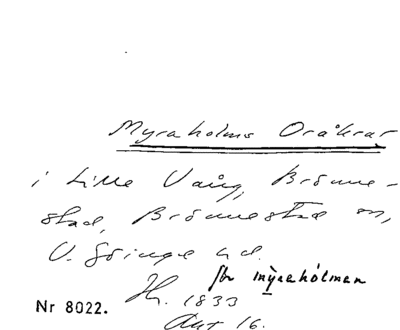 Myraholms Oråkrar
i Lille Vång, Brönne-
stad, Brönnestad sn,
V. Göinge hd.
för myraholmen
H. 1833
Nr 8022.
Akt 16.